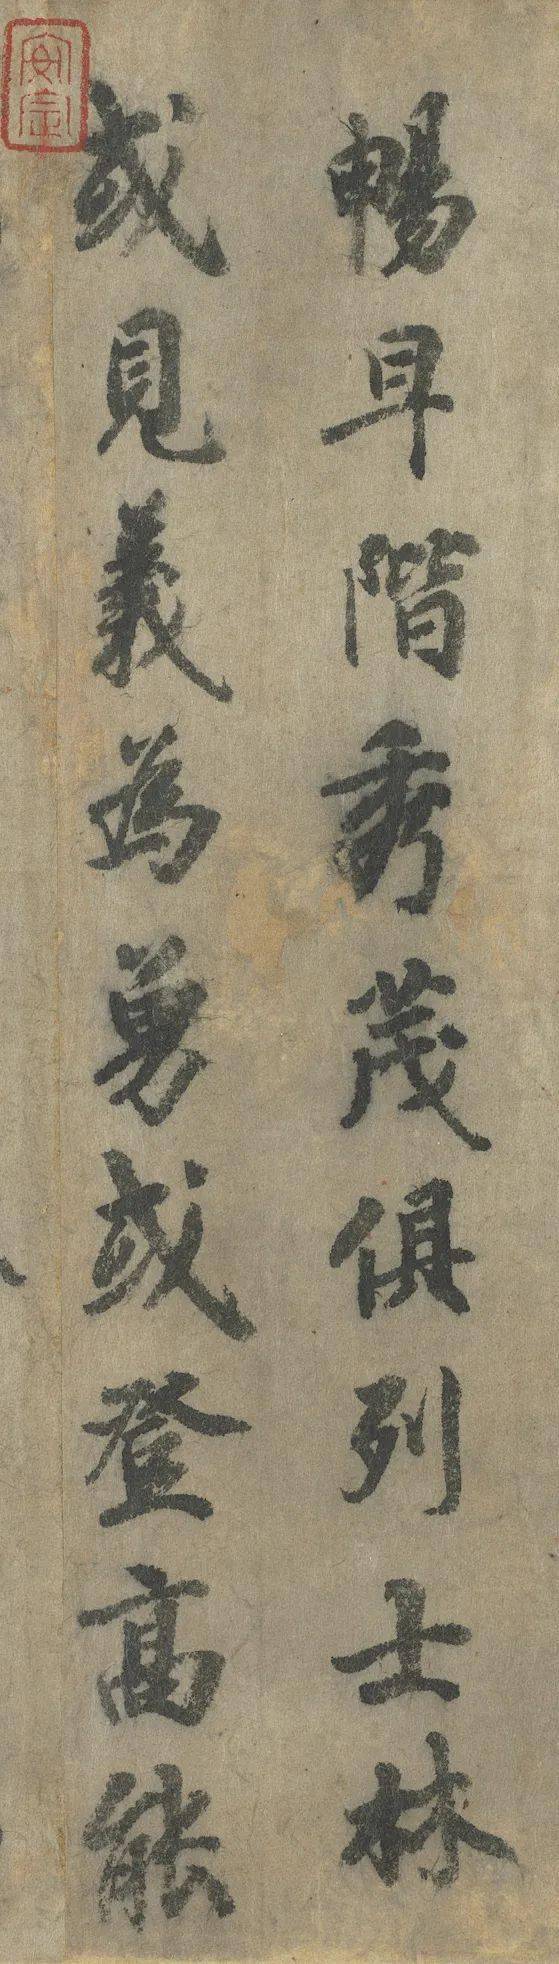 暢早階秀茂俱列士林
或見義為勇或登高能